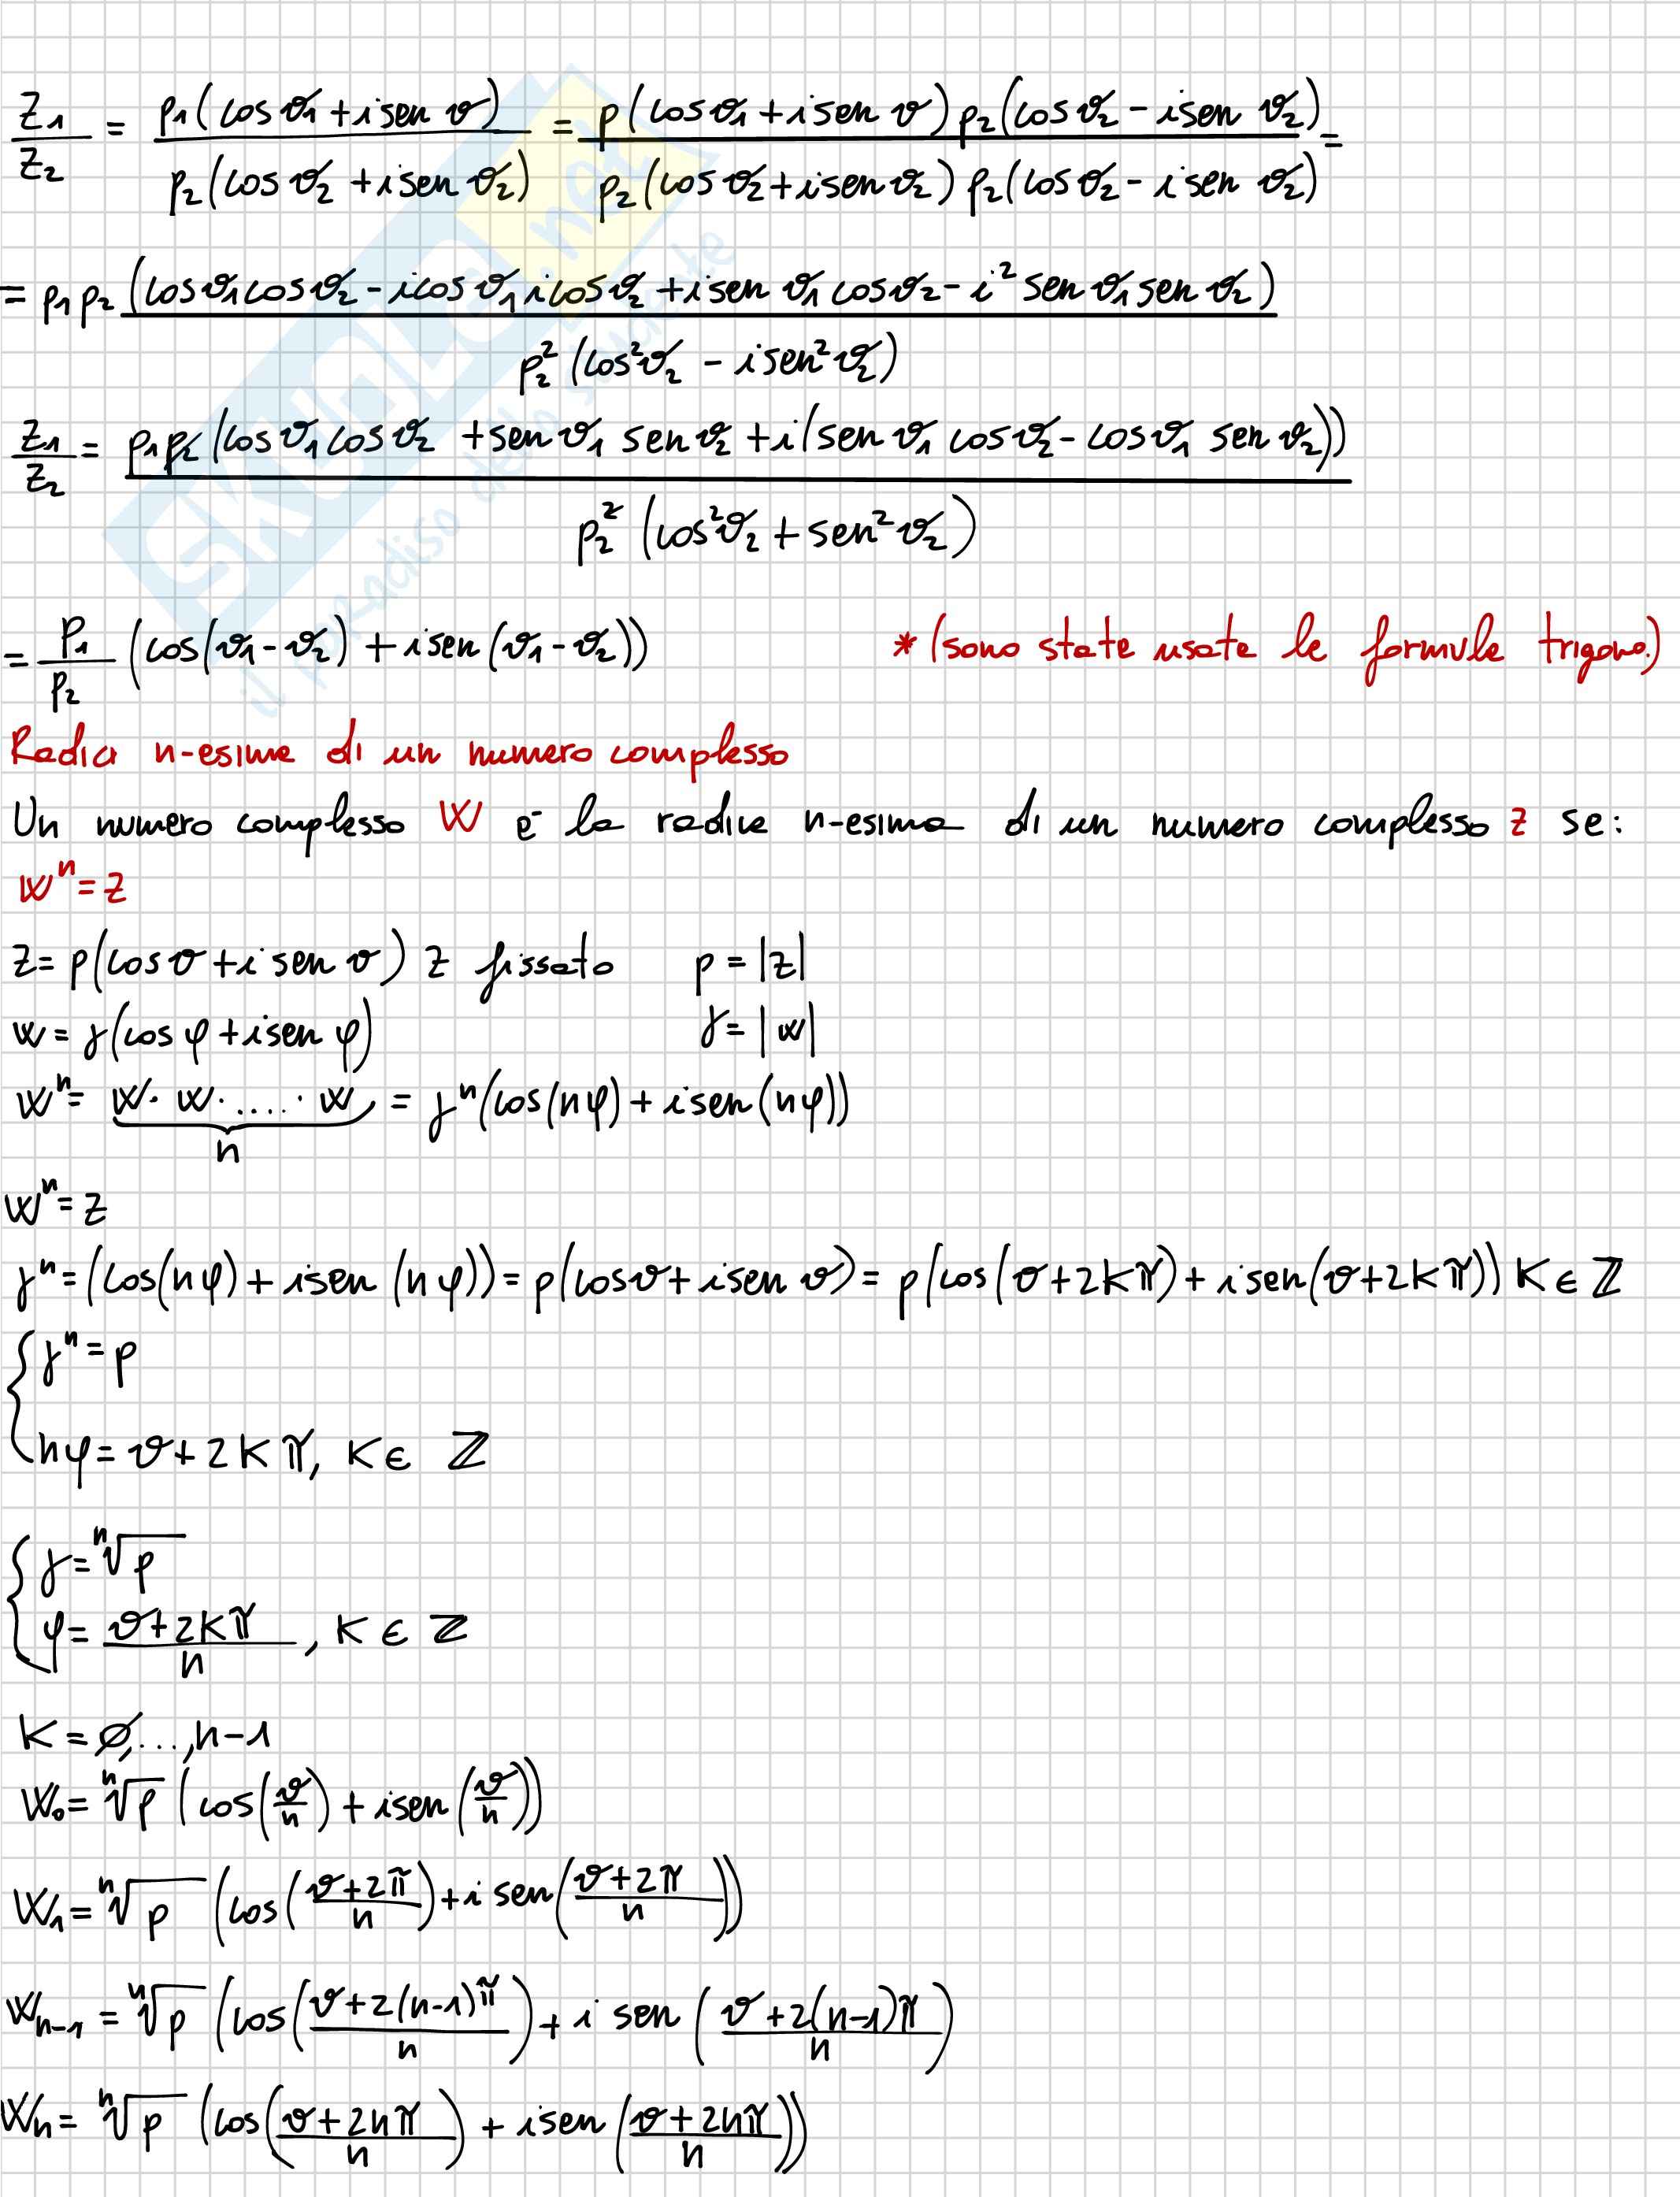 z1/z2 = p1(cosϑ1+isen ϑ)/p2(cosϑ2+isenϑ2) = p(cosϑ1+isen ϑ)p2(cosϑ2-isen ϑ2)/p2(cosϑ2+isenϑ2)p2(cosϑ2-isen ϑ2) =
= p1p2 (cosϑ1cosϑ2-icosϑ1icosϑ2+isenϑ1cosϑ2-i²senϑ1senϑ2)/p2²(cos²ϑ2-isen²ϑ2)
z1/z2 = p1p2(cosϑ1cosϑ2+senϑ1senϑ2+i(senϑ1cosϑ2-cosϑ1senϑ2))/p2²(cos²ϑ2+sen²ϑ2)
= p1/p2 (cos(ϑ1-ϑ2)+isen(ϑ1-ϑ2)) * (sono state usate le formule trigono.)
Radici n-esime di un numero complesso
Un numero complesso W è la radice n-esima di un numero complesso z se:
wⁿ=z
z=p(cosϑ+isenϑ) z fissato p=|z|
w=γ(cosφ+isenφ) γ=|w|
wⁿ= w·w·....·w = γⁿ(cos(nφ)+isen(nφ))
n
wⁿ=z
γⁿ=(cos(nφ)+isen(nφ))=p(cosϑ+isenϑ)=p(cos(ϑ+2kπ)+isen(ϑ+2kπ)) K∈ℤ
{ γⁿ=p
nφ=ϑ+2kπ, K∈ ℤ
{ γ=ⁿ√p
φ=(ϑ+2kπ)/n, K∈ℤ
K=∅,...,n-1
W₀=ⁿ√p (cos(ϑ/n)+isen(ϑ/n))
W₁=ⁿ√p (cos((ϑ+2π)/n)+isen((ϑ+2π)/n))
Wn-1=ⁿ√p (cos((ϑ+2(n-1)π)/n)+i sen((ϑ+2(n-1)π)/n)
Wn=ⁿ√p (cos((ϑ+2nπ)/n)+isen((ϑ+2nπ)/n))
SKUOLA.net
il paradiso dello studente